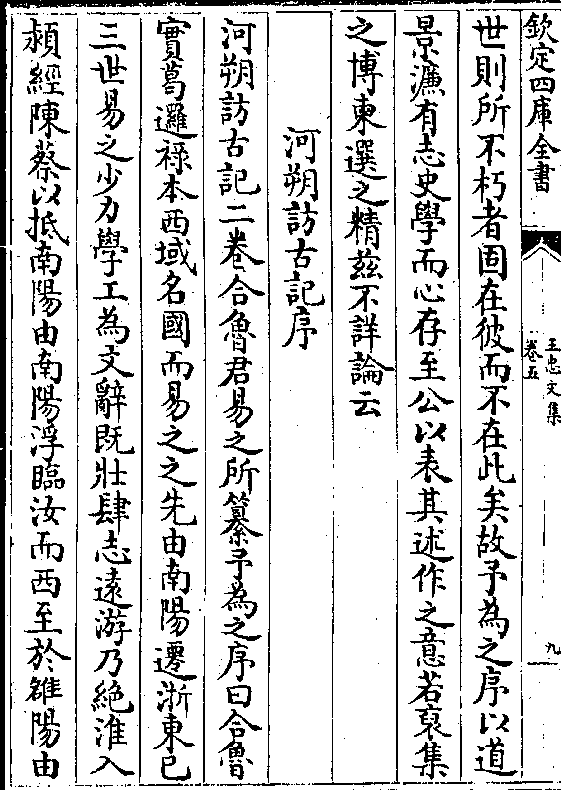 欽定四庫全書
王忠文集
卷五
九
世則所不朽者固在彼而不在此矣故予為之序以道
景濓有志史學而心存至公以表其述作之意若裒集
之博柬選之精茲不詳論云
河朔訪古記序
河朔訪古記二卷合魯君易之所纂予為之序曰合魯
實葛邏祿本西域名國而易之之先由南陽遷浙東已
三世易之少力學工為文辭既壯肆志遠游乃絶淮入
潁經陳蔡以抵南陽由南陽浮臨汝而西至於雒陽由